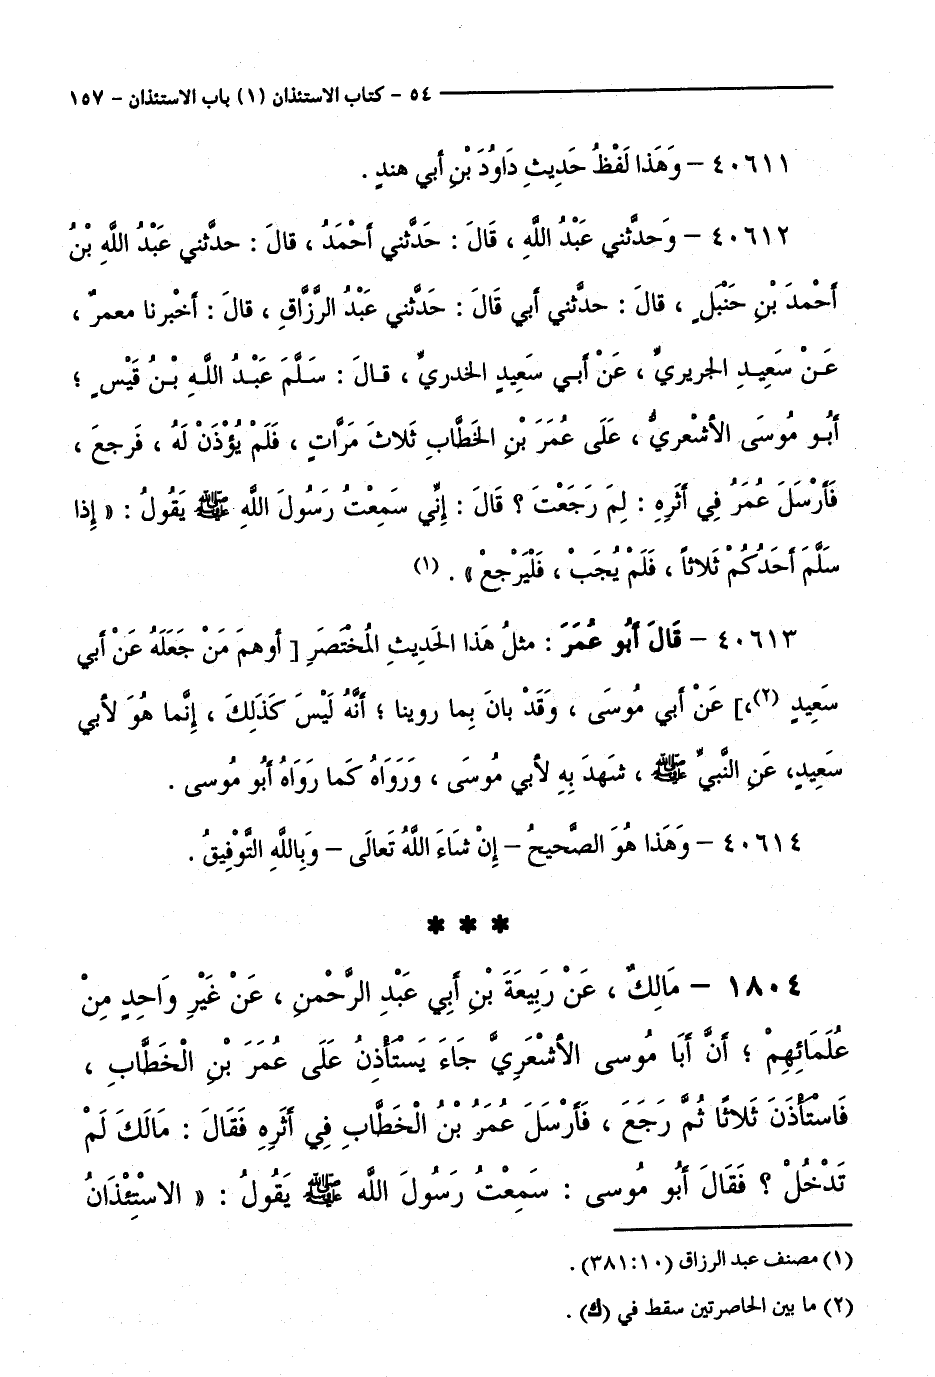 ٥٤ - كتاب الاستئذان (١) باب الاستئذان - ١٥٧
٤٠٦١١ - وَهَذا لَفْظُ حَدِيثِ دَاوُدَ بْنِ أبي هندٍ .
٤٠٦١٢ - وَحدَّثني عَبْدُ اللَّهِ ، قَالَ : حَدَّثني أحْمَدُ ، قالَ : حدَّثني عَبْدُ اللَّهِ بْنُ
أَحْمدَ بْنِ حَنْبَلٍ ، قالَ : حدَّثني أبي قَالَ : حَدَّثني عَبْدُ الرَّزَّاقِ ، قالَ : أخْبرنا معمرٌ ،
عَـنْ سَعِيـدِ الجريريِّ ، عَنْ أبـي سَعِيدٍ الخدريِّ ، قـالَ : سَـلَّمَ عَبْـدُ اللـهِ بْـنُ قَيْسٍ ؛
أبُـو مُوسَى الأشْعريُّ ، عَلَى عُمَرَ بْنِ الخَطَّابِ ثَلاثَ مَرَّاتٍ ، فَلَمْ يُؤذَنْ لَهُ ، فَرجعَ ،
فَأَرْسَلَ عُمَرُ فِي أثَرِهِ : لِمَ رَجَعْتَ ؟ قَالَ : إنِّي سَمِعْتُ رَسُولَ اللَّهِ ﷺ يَقُولُ : « إِذا
سَلَّمَ أَحَدُكُمْ ثَلاثاً ، فَلَمْ يُجَبْ ، فَلْيَرْجعْ » . (١)
٤٠٦١٣ - قَالَ أَبُو عُمَرَ : مثلُ هَذا الحَدِيثِ المُخْتَصَرِ [ أوهمَ مَنْ جَعَلَهُ عَنْ أبي
سَعِيدٍ (٢)،] عَنْ أبي مُوسَى ، وَقَدْ بانَ بِما روينا ؛ أنَّهُ لَيْسَ كَذَلِكَ ، إنَّما هُوَ لأبي
سَعِيدٍ، عَنِ النَّبيِّ ﷺ ، شَهدَ بِهِ لأبي مُوسَى ، وَرَوَاهُ كَما رَوَاهُ أبُو مُوسى .
٤٠٦١٤ - وَهَذا هُوَ الصَّحيحُ - إنْ شَاءَ اللَّهُ تَعالَى - وَبِاللَّهِ التَّوْفِيقُ .
* * *
١٨٠٤ - مَالِكٌ ، عَنْ رَبِيعَةَ بْنِ أَبِي عَبْدِ الرَّحْمنِ ، عَنْ غَيْرِ وَاحِدٍ مِنْ
عُلَمَائِهِمْ ؛ أَنَّ أَبَا مُوسى الأشْعَرِيَّ جَاءَ يَسْتَأْذِنُ عَلَى عُمَرَ بْنِ الْخَطَّابِ ،
فَاسْتَأْذَنَ ثَلاثًا ثُمَّ رَجَعَ ، فَأَرْسَلَ عُمَرُ بْنُ الْخَطَّابِ فِي أَثَرِهِ فَقَالَ : مَالَكَ لَمْ
تَدْخُلْ ؟ فَقَالَ أَبُو مُوسى : سَمِعْتُ رَسُولَ اللَّه ﷺ يَقُولُ : « الاسْتِئْذَانُ
(١) مصنف عبد الرزاق (١٠ : ٣٨١) .
(٢) ما بين الحاصرتين سقط في (ك) .